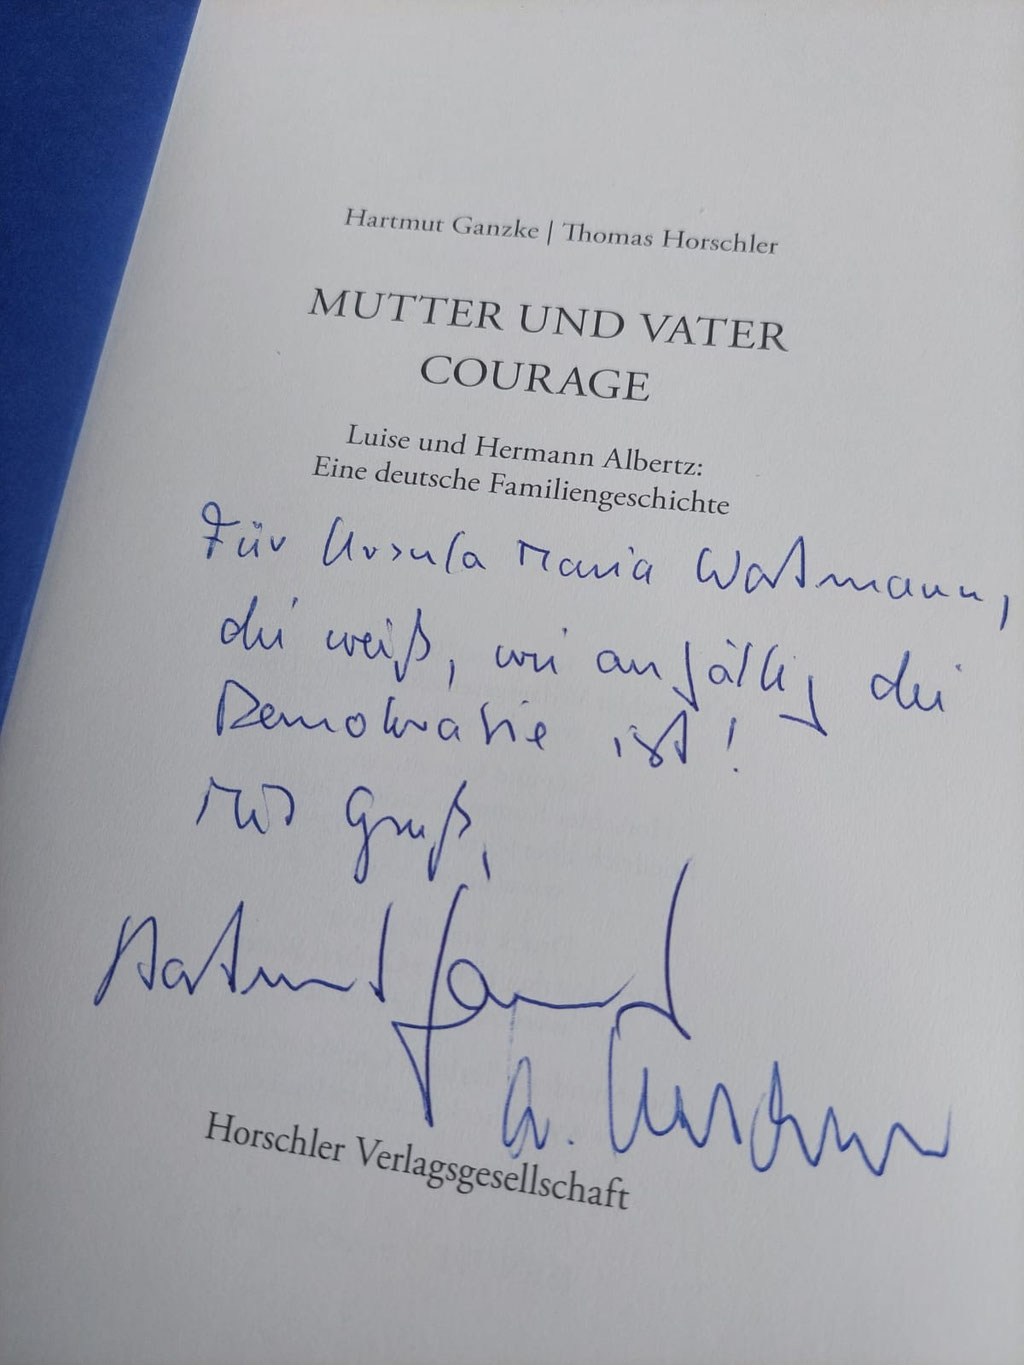 Hartmut Ganzke | Thomas Horschler
MUTTER UND VATER
COURAGE
Luise und Hermann Albertz:
Eine deutsche Familiengeschichte
Für Ursula Maria Wartmann,
die weiß, wie anfällig die
Demokratie ist!
Mit Gruß,
Hartmut Ganzke
Horschler Verlagsgesellschaft